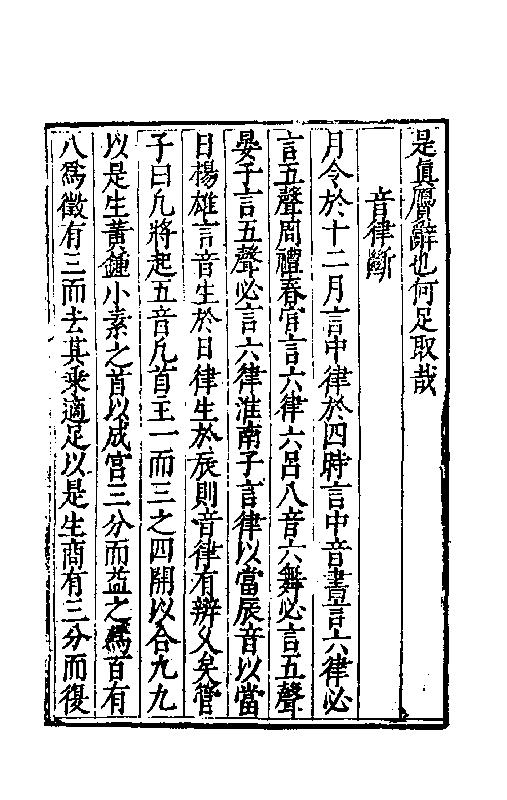 是真贗辭也何足取哉
音律斷
月令於十二月言中律於四時言中音書言六律必
言五聲周禮春官言六律六呂八音六舞必言五聲
晏子言五聲必言六律淮南子言律以當辰音以當
日楊雄言音生於日律生於辰則音律有辨乆矣管
子曰凡將起五音凡首王一而三之四開以合九九
以是生黃鍾小素之首以成宫三分而益之爲百有
八爲徵有三而去其乘適足以是生商有三分而復